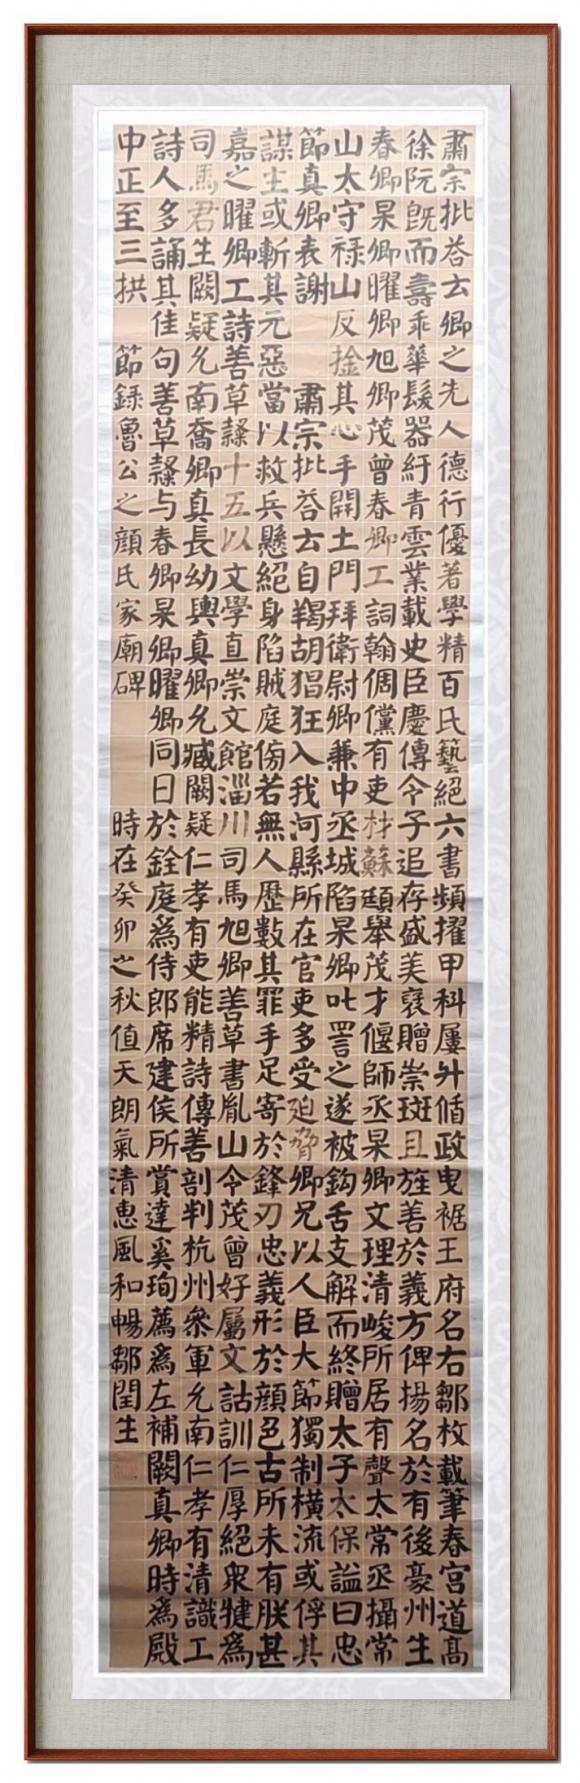 肅宗批荅云卿之先人德行優著學精百氏藝絕六書頻擢甲科屢升循政曳裾王府名右鄒枚載筆春宮道髙
徐阮旣而壽乖華髮器紆青雲業載史臣慶傳令子追存盛美襃贈崇班且旌善於義方俾揚名於有後豪州生
春卿杲卿曜卿旭卿茂曾春卿工詞翰倜儻有吏材蘇頲舉茂才偃師丞杲卿文理清峻所居有聲太常丞攝常
山太守祿山反捦其心手開土門拜衛尉卿兼中丞城陷杲卿叱詈之遂被鈎舌支解而終贈太子太保謚曰忠
節真卿表謝 肅宗批荅云自羯胡猖狂入我河縣所在官吏多受迫脅卿兄以人臣大節獨制橫流或俘其
謀主或斬其元惡當以救兵懸絕身陷賊庭傍若無人歷數其罪手足寄於鋒刃忠義形於顔色古所未有朕甚
嘉之曜卿工詩善草隸十五以文學直崇文館淄川司馬旭卿善草書胤山令茂曾好屬文詁訓仁厚絕衆犍為
司馬君生闕疑允南喬卿真長幼輿真卿允臧闕疑仁孝有吏能精詩傳善剖判杭州叅軍允南仁孝有清識工
詩人多誦其佳句善草隸与春卿杲卿曜卿同日於銓庭為侍郎席建侯所賞達奚珣薦為左補闕真卿時為殿
中正至三拱 節録魯公之顔氏家廟碑 時在癸卯之秋值天朗氣清惠風和暢鄒閏生